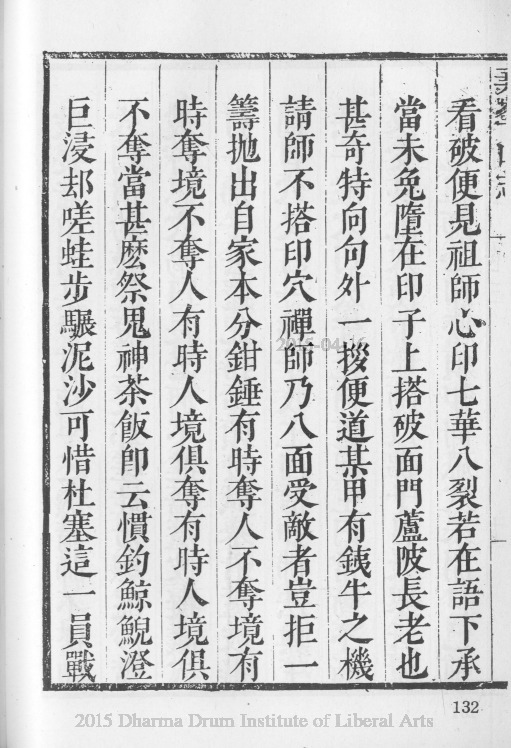 看破便見祖師心印七華八裂若在語下承
當未免墮在印子上搭破面門蘆陂長老也
甚奇特向句外一拶便道某甲有鉄牛之機
請師不搭印穴禪師乃八面受敵者豈拒一
籌拋出自家本分鉗錘有時奪人不奪境有
時奪境不奪人有時人境俱奪有時人境俱
不奪當甚麽祭鬼神茶飯卽云慣釣鯨鯢澄
巨浸却嗟蛙步驟泥沙可惜杜塞這一員戰
132
2015 Dharma Drum Institute of Liberal Arts